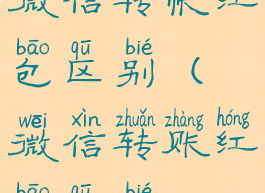 微信转账红
bāo qū bié
包区别（
wēi xìn zhuǎn zhàng hóng
微信转账红
bāo qū bié